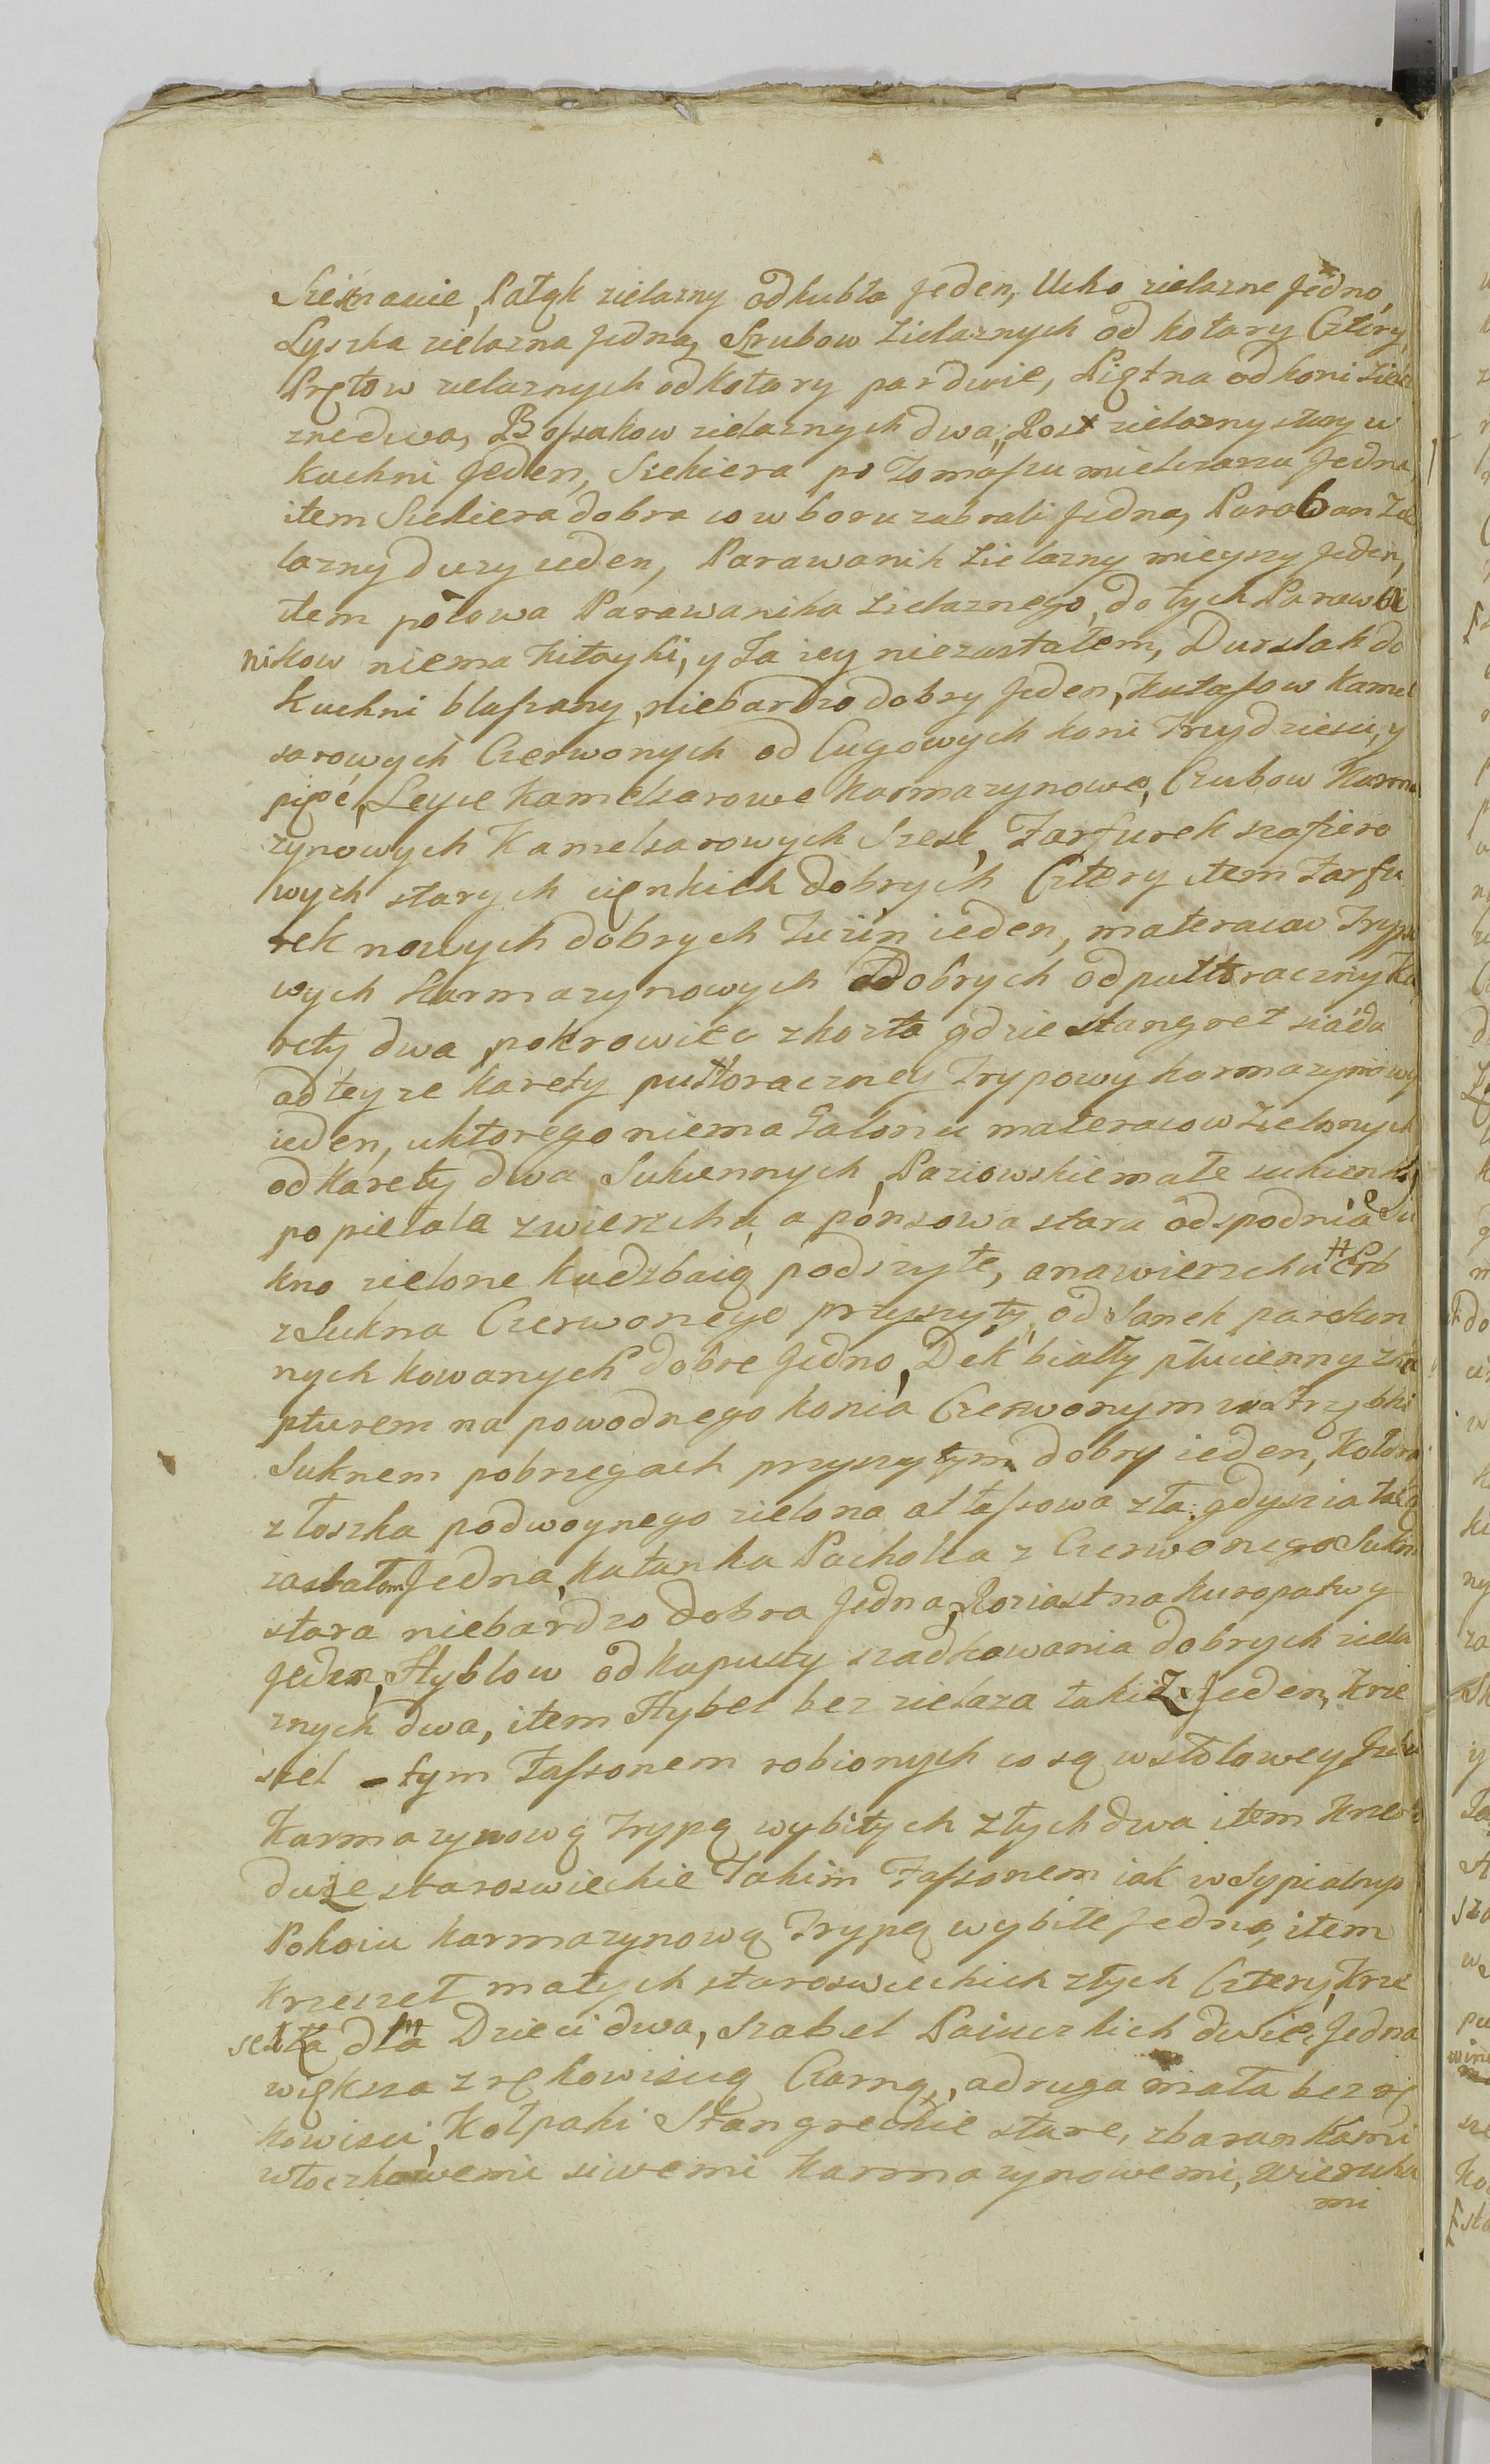 Sieznaście, Pałąk zielazny od kubła Jeden, Ucho zielazne Jedno,
Łyszka zielazna Jedna, Szrubow Zielaznych od kotary Cztery,
Prętow zielaznych od Kotary par dwie, Piętna od koni Ziela
zne dwa, Bossakow zielaznych dwa, Rost zielazny stary w
kuchni Jeden, Siekiera po Tomaszu mielcarzu Jedna,
item Siekiera dobra co w boru zabrali Jedna, Paraban Zie
lazny duzy ieden, Parawanik Zielazny mieyszy Jeden,
item połowa Parawanika Zielaznego, do tych Parawa
nikow niema Kitayki, y Ja iey niezastałem, Durslak do
kuchni blaszany niebardzo dobry Jeden, Kutasow Kamel
sorowych Czerwonych od Cugowych koni Trzydziesci, y
pięć, Leyce Kamelsarowe Karmazynowe, Czubow Karma
zynowych Kamelsarowych Szesc, Farfurek szafiero
wych starych cięnkich dobrych Cztery item Farfu
rek nowych dobrych Tuzin ieden, materacow Trypo
wych Karmazynowych dobrych od pułtoraczny Ka
rety dwa, pokrowiec z kozła gdzie stangret siada
od tey ze karety pułtoraczney Trypowy karmazynowy
ieden, u ktorego niema Galonu materacow Zielonych
od Karety dwa Sukiennych, Paziowskie małe sukienki
popielate zwierzchu, a ponsowa stara od spodnia Su
kno zielone kudzbaią podszyte, a na wierzchu # Erb
z Sukna Czerwonego przyszyty, od Sanek parokon
nych kowanych dobre Jedno, Dek biały płucienny z ka
pturem na powodnego konia Czerwonym w Trzybki
Suknem po brzegach przyszytym dobry ieden, Kołdra
z łoszka podwoynego zielona atłasowa zła: gdysz ia taką
zastałem Jedna, Katanka Pachołka z Czerwonego Sukna
stara niebardzo dobra Jedna, Roziast na kuropatwy
Jeden, Hyblow od kapusty szadkowania dobrych ziela
znych dwa, item Hybel bez zielaza taki Z: Jeden, Krze
seł - tym Fassonem robionych co są w stołowey Izbie
Karmazynową Trypą wybitych złych dwa item Krzesło
duże staroswieckie Takim Fassonem iak w Sypialnym
Pokoiu karmazynową Trypą wybite Jedno, item
Krzeszeł małych staroswieckich złych Cztery, Krze
sełka dla Dzieci dwa, Szabel Paiuczkich dwie, Jedna
większa z rękowiscią Czarną, a druga mała bez rę
kowisci, Kołpaki Stangreckie stare, z barankami
włoczkowemi siwemi Karmazynowemi, wierzcha
mi